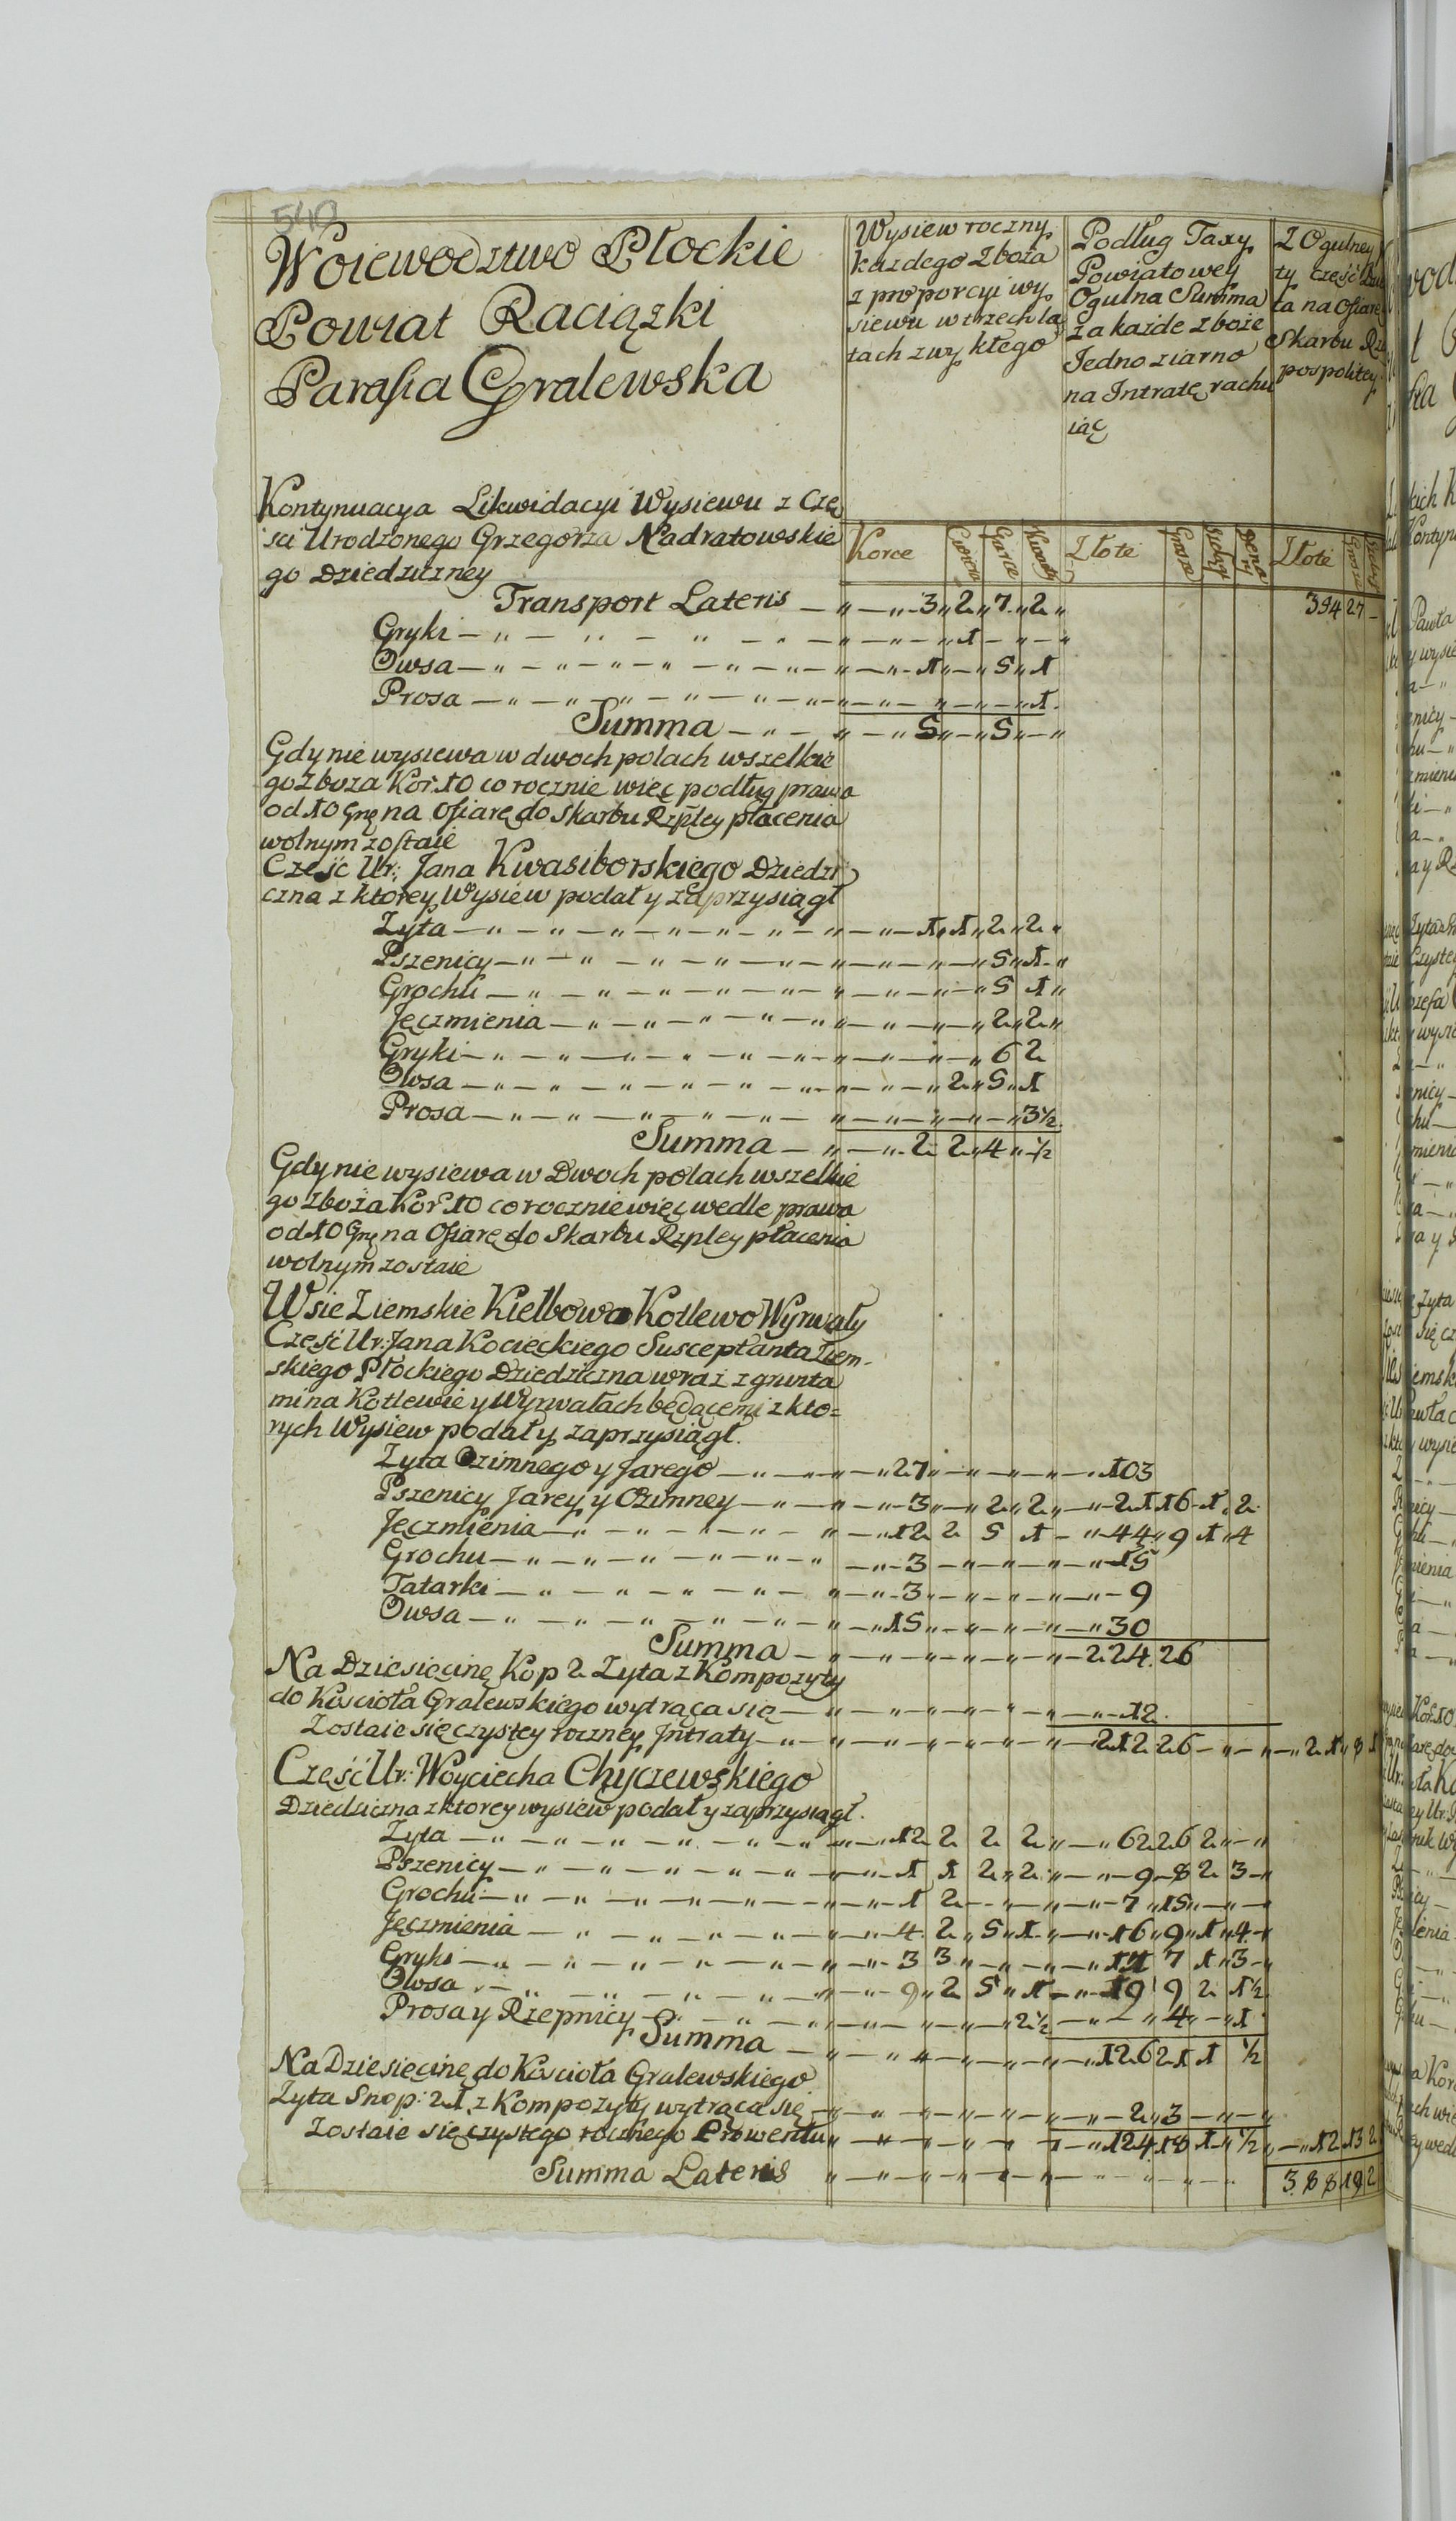 Woiewodztwo Płockie
Powiat Raciązki
Parafia Gralewska
Wysiew roczny
kazdego Zboza
z proporcyi wy
siewu w trzech la
tach zwykłego
Podług Taxy
Powiatowey
Ogulna Summa
za kazde zboze
Jedno ziarno
na Intratę rachu
iąc
Z Ogulney
ty część
ta na Ofiarę
Skarbu Rze
pospolitey
Kontynuacya Likwidacyi Wysiewu z Czę
sci Urodzonego Grzegorza Nadratowskie
go Dziedziczney
Korce Garce Kwarty Złote Grosze Złote
Transport Lateris — 3 2 7 2 394 27 -
Gryki — 1
Owsa — 1 — 5 1
Prosa — 1
Summa — 5 — 5 —
Gdy nie wysiewa w dwoch polach wszelkie
go Zboza Kor: 10 co rocznie więc podług prawa
od 10 Grę na Ofiarę do Skarbu Rzpltey płacenia
wolnym zostaie
Część Ur: Jana Kwasiborskiego Dziedzi
czna z ktorey Wysiew podał y zaprzysiągł
Zyta — 1 1 2 2
Pszenicy — 5 1
Grochu — 5 1
Jęczmienia — 2 2
Gryki — 6 2
Owsa — 2 5 1
Prosa — 3½
Summa — 2 2 4 ½
Gdy nie wysiewa w Dwoch polach wszelkie
go Zboża Kor: 10 co rocznie więc wedle prawa
od 10 Grę na Ofiarę do Skarbu Rzpley płacenia
wolnym zostaie
Wsie Ziemskie Kiełbowo Kotlewo Wyrwały
Część Ur: Jana Kocięckiego Susceptanta Ziem-
skiego Płockiego Dziedziczna wraz z grunta
mi na Kotlewie y Wyrwałach będącemi z kto=
rych Wysiew podał y zaprzysiągł.
Zyta Ozimnego y Jarego — 27 — 103
Pszenicy Jarey y Ozimney — 3 — 2 2 — 21 16 1 2
Jęczmienia — 12 2 5 1 — 44 9 1 4
Grochu — 3 — 15
Tatarki — 3 — 9
Owsa — 15 — 30
Summa — 224 26
Na Dziesięcinę Kop 2 Zyta z Kompozyty
do Kościoła Gralewskiego wytrąca się — 12
Zostaie się czystey roczney Jntraty — 212 26 — 21 8 1
Część Ur: Woyciecha Chyczewskiego
Dziedziczna z ktorey wysiew podał y zaprzysiągł.
Zyta — 12 2 2 2 — 62 26 2 —
Pszenicy — 1 1 2 2 — 9 8 2 3
Grochu — 1 2 — 7 15 —
Jęczmienia — 4 2 5 1 — 16 9 1 4
Gryki — 3 3 — 11 7 1 3
Owsa — 9 2 5 1 — 19 9 2 1½
Prosa y Rzepnicy — 2½ — 4 — 1
Summa — 126 21 1 ½
Na Dziesięcinę do Kościoła Gralewskiego
Zyta Snop: 21 z Kompozyty wytrąca się — 2 3 —
Zostaie się czystego rocznego Prowentu — 124 18 1 ½ — 12 13 2
Summa Lateris — 388 19 2